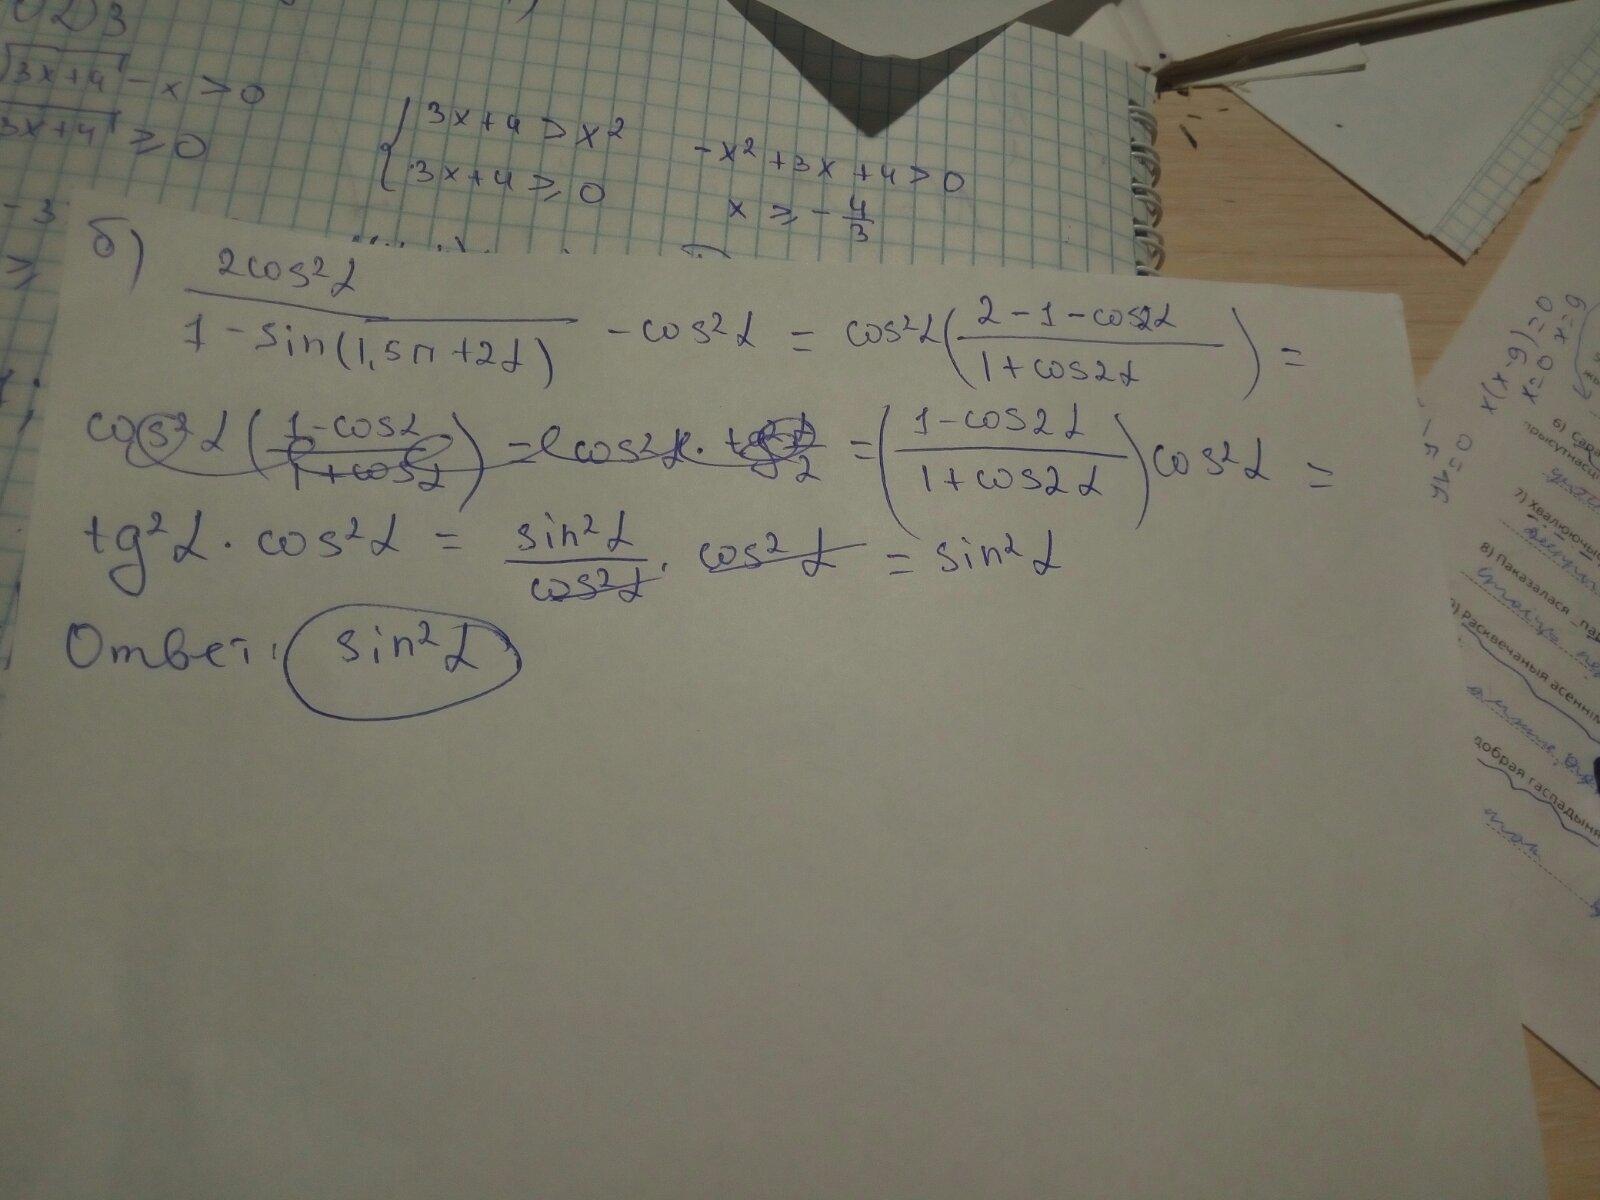 √3x+4 - x > 0
3x+4 ≥ 0
{ 3x+4 > x²
3x+4 ≥ 0
-x² + 3x + 4 > 0
x ≥ -4/3
б) 2cos²α / (1 - sin(1,5π + 2α)) - cos²α = cos²α((2 - 1 - cos2α) / (1 + cos2α)) =
cos²α((1 - cosα) / (1 + cosα)) = = ((1 - cos2α) / (1 + cos2α)) cos²α =
tg²α · cos²α = sin²α / cos²α · cos²α = sin²α
Ответ: sin²α
x(x-9)=0
x=0 x=9
6) Сара
прысутнасц
7) Хвалюючы
8) Паказалася
Расквечаныя асеннім
добрая гаспадыня